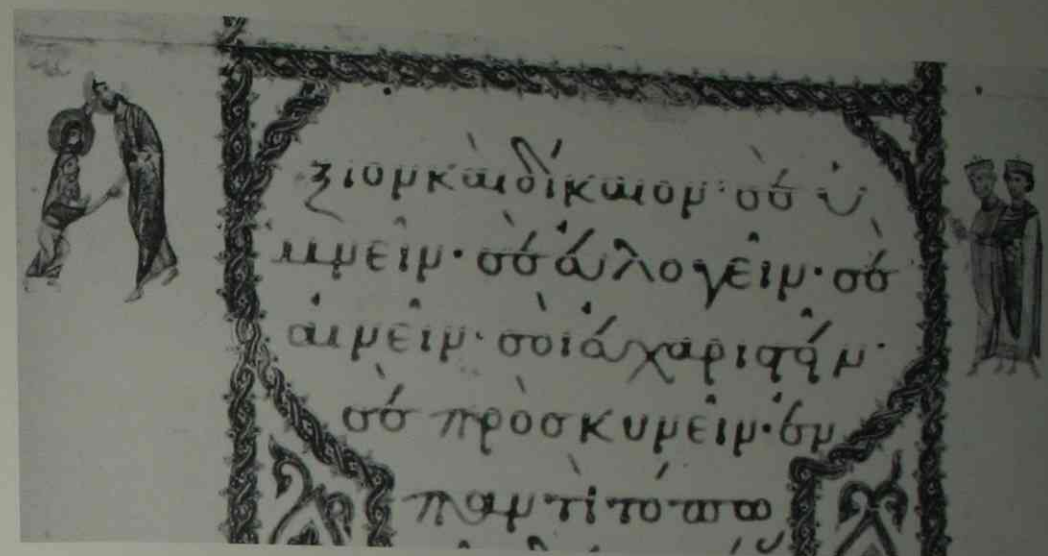 Αξιον καὶ δίκαιον· σὲ ὑ
μνεῖν· σὲ εὐλογεῖν· σὲ
αἰνεῖν· σοὶ εὐχαριστεῖν·
σὲ προσκυνεῖν· ἐν
παντὶ τόπω